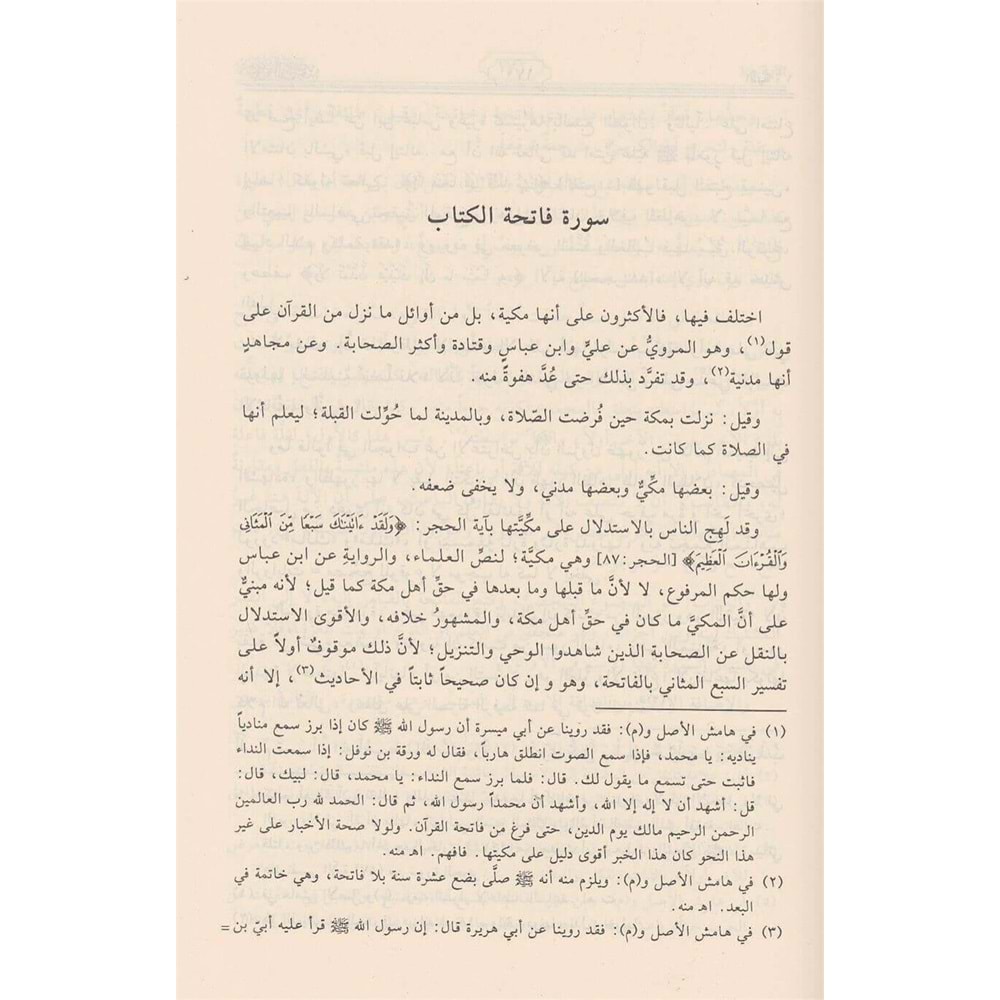 سورة فاتحة الكتاب
اختلف فيها، فالأكثرون على أنها مكية، بل من أوائل ما نزل من القرآن على
قول(١)، وهو المرويُّ عن عليٍّ وابن عباسٍ وقتادة وأكثر الصحابة. وعن مجاهدٍ
أنها مدنية(٢)، وقد تفرَّد بذلك حتى عُدَّ هفوةً منه.
وقيل: نزلت بمكة حين فُرضت الصّلاة، وبالمدينة لما حُوِّلت القبلة؛ ليعلم أنها
في الصلاة كما كانت.
وقيل: بعضها مكِّيٌّ وبعضها مدني، ولا يخفى ضعفه.
وقد لَهِج الناس بالاستدلال على مكِّيَّتها بآية الحجر: ﴿وَلَقَدْ ءَاتَيْنَٰكَ سَبْعًا مِّنَ ٱلْمَثَانِى
وَٱلْقُرْءَانَ ٱلْعَظِيمَ﴾ [الحجر:٨٧] وهي مكيَّة؛ لنصِّ العلماء، والروايةِ عن ابن عباس
ولها حكم المرفوع، لا لأنَّ ما قبلها وما بعدها في حقِّ أهل مكة كما قيل؛ لأنه مبنيٌّ
على أنَّ المكيَّ ما كان في حق أهل مكة، والمشهورُ خلافه، والأقوى الاستدلال
بالنقل عن الصحابة الذين شاهدوا الوحي والتنزيل؛ لأنَّ ذلك موقوفٌ أولاً على
تفسير السبع المثاني بالفاتحة، وهو و إن كان صحيحاً ثابتاً في الأحاديث(٣)، إلا أنه
(١) في هامش الأصل و(م): فقد روينا عن أبي ميسرة أن رسول الله ﷺ كان إذا برز سمع منادياً
يناديه: يا محمد، فإذا سمع الصوت انطلق هارباً، فقال له ورقة بن نوفل: إذا سمعت النداء
فاثبت حتى تسمع ما يقول لك. قال: فلما برز سمع النداء: يا محمد، قال: لبيك، قال:
قل: أشهد أن لا إله إلا الله، وأشهد أن محمداً رسول الله، ثم قال: الحمد لله رب العالمين
الرحمن الرحيم مالك يوم الدين، حتى فرغ من فاتحة القرآن. ولولا صحة الأخبار على غير
هذا النحو كان هذا الخبر أقوى دليل على مكيتها. فافهم. اهـ منه.
(٢) في هامش الأصل و(م): ويلزم منه أنه ﷺ صلَّى بضع عشرة سنة بلا فاتحة، وهي خاتمة في
البعد. اهـ منه.
(٣) في هامش الأصل و(م): فقد روينا عن أبي هريرة قال: إن رسول الله ﷺ قرأ عليه أبيّ بن =